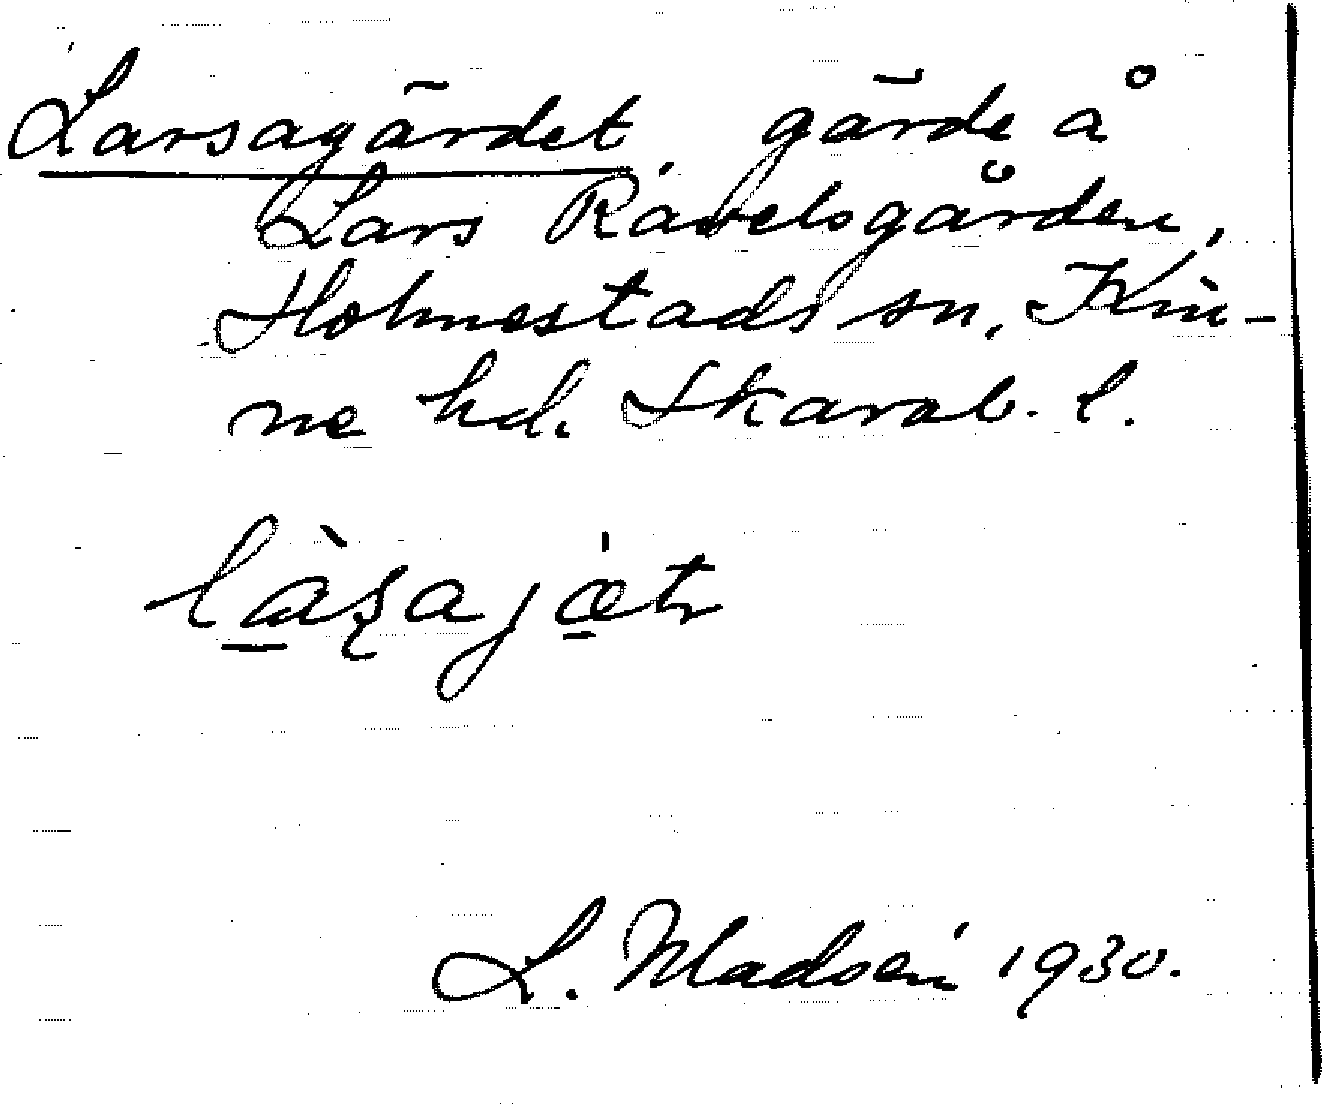 Larsagärdet, gärde å
Lars Ravelsgården,
Holmestads sn, Kin-
ne hd. Skarab. l.
L. Madsén 1930.